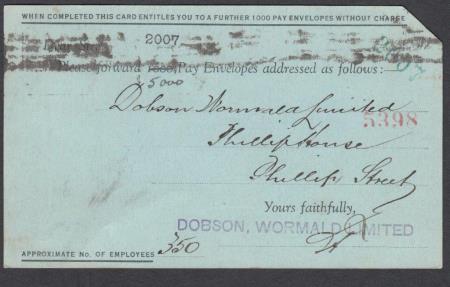 WHEN COMPLETED THIS CARD ENTITLES YOU TO A FURTHER 1000 PAY ENVELOPES WITHOUT CHARGE
Dear Sirs,
2007
Please forward 1000, Pay Envelopes addressed as follows:—
5000
Dobson Wormald Limited
5398
Phillip House
Phillip Street
Yours faithfully,
DOBSON, WORMALD LIMITED
APPROXIMATE NO. OF EMPLOYEES 350